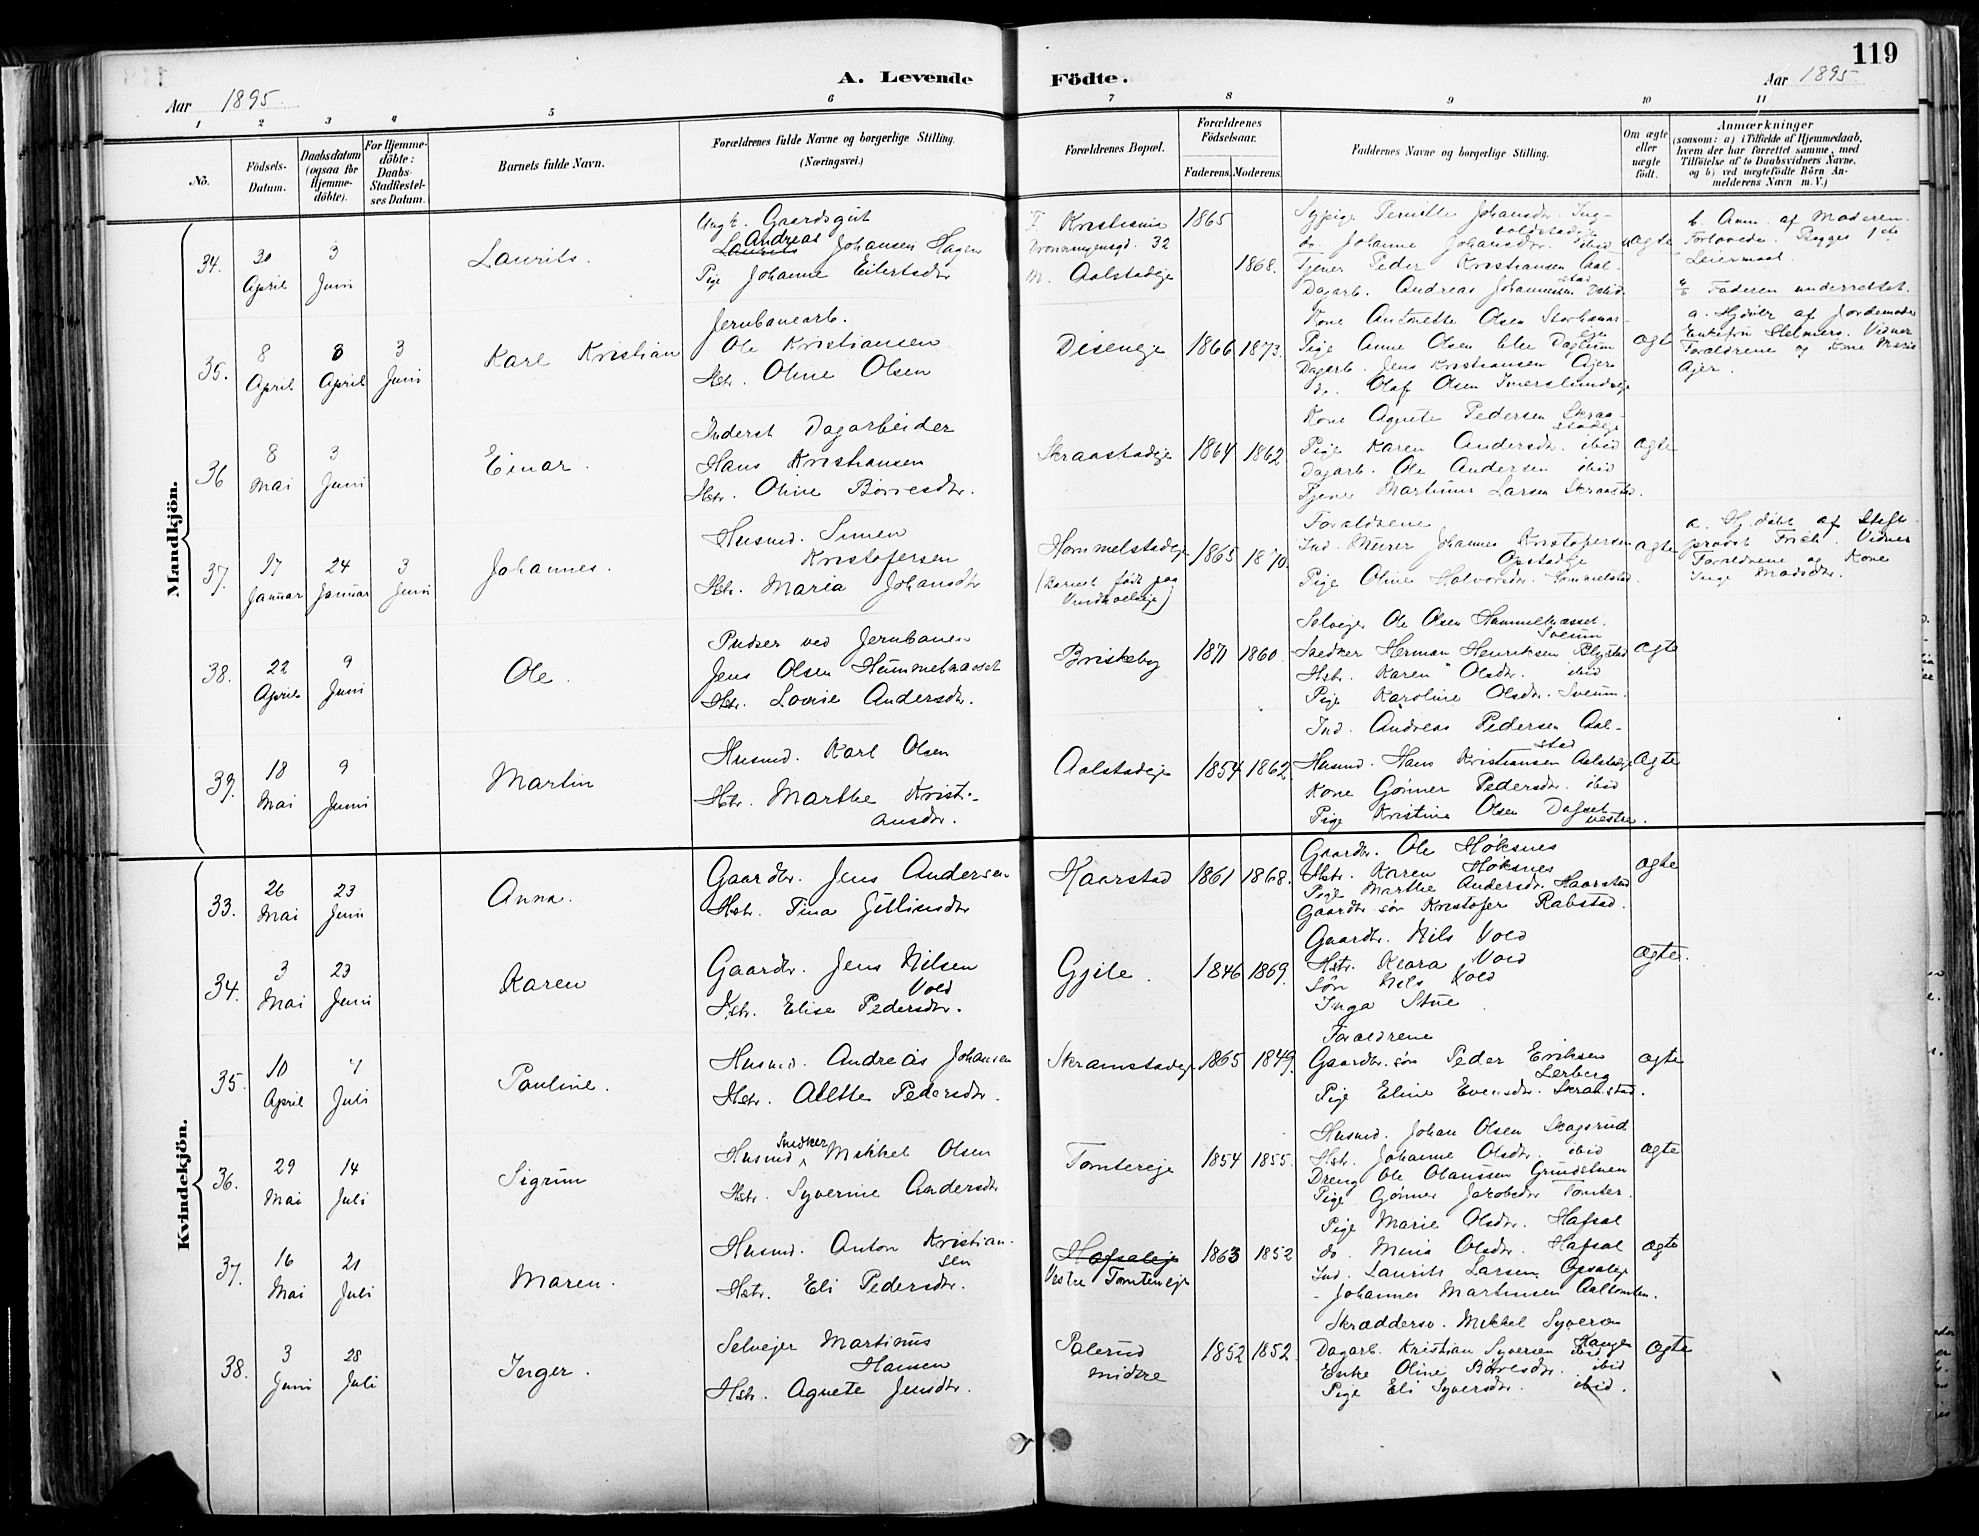 119
A. Levende Födte.
Aar 1895
Aar 1895
1 2 3 4 5 6 7 8 9 10 11
No.
Födsels-Datum.
Daabsdatum (ogsaa for Hjemmedöbte).
For Hjemmedöbte: Daabs-Stadfæstelses Datum.
Barnets fulde Navn.
Forældrenes fulde Navne og borgerlige Stilling. (Næringsvei.)
Forældrenes Bopæl.
Forældrenes Födselsaar.
Faderens. Moderens.
Faddernes Navne og borgerlige Stilling.
Om ægte eller uægte födt.
Anmærkninger
(saasom: a) i Tilfælde af Hjemmedaab, hvem der har forrettet samme, med Tilföielse af to Daabsvidners Navne, og b) ved uægtefödte Börn Anmelderens Navn m. V.)
Mandkjön.
34. 30 April 3 Juni
Laurits.
Ungk. Gaardsgut
Laurits Andreas Johansen Hagen
Pige Johanne Eilertsdtr
F. Kristiania
Dronningensgd. 32
M. Aalstadeje
1865 1868.
Sypige Pernille Johansdr.
do. Johanne Johansdr. ibid
Tjener Peder Kristiansen Aalstad
Dagarb. Andreas Johannesen
uægte
b. Anm. af Moderen.
Forlovede. Begges 1ste
Leiermaal.
Faderen underrettet.
35. 8 April 8 April 3 Juni
Karl Kristian
Jernbanearb.
Ole Kristiansen
Hstr. Oline Olsen
Diseneje 1866 1873.
Kone Antonette Olsen
Pige Anne Olsen
Dagarb. Jens Kristiansen Ajer
do. Olaf Olsen
ægte
a. Hjdöbt af Jordemoder
Enkefru Helmers. Vidner
Forældrene og Kone Marie
Ajer.
36 8 Mai 3 Juni
Einar.
Inderst Dagarbeider
Hans Kristiansen
Hstr. Oline Börresdtr.
Skraastadeje 1864 1862
Kone Agnete Pedersen Skraastadeje
Pige Karen Andersdr. ibid
Dagarb. Ole Andersen ibid
Tjener Martinus Larsen Skraastad.
ægte
37. 17 Januar 24 Januar 3 Juni
Johannes.
Husmd. Simen
Kristofersen
Hstr. Maria Johansdtr
Hommelstadeje
(Barnet födt paa
1865 1870.
Forældrene
Ind. Murer Johannes Kristofersen
Opstadeje
Pige Oline Halvorsdr. Hommelstad.
ægte
a. Hj.döbt af Stiftsprovst
Vidner
Forældrene og Kone
Inge Madsdtr.
38. 22 April 9 Juni
Ole.
Pudser ved Jernbanen
Jens Olsen Hummelnæsset
Hstr. Lovise Andersdtr.
Briskeby 1871 1860.
Selveger Ole Olsen Hummelnæsset.
Snedker Herman Henriksen
Hstr. Karen Olsdtr. ibid
Pige Karoline Olsdr. Sveum.
ægte
39. 18 Mai 9 Juni
Martin
Husmd. Karl Olsen
Hstr. Marthe Kristiansdtr.
Aalstadeje 1854 1862.
Ind. Andreas Pedersen Aalstad
Husmd. Hans Kristiansen Aalstadeje
Kone Gönner Pedersdr. ibid
Pige Kristine Olsen
ægte
Kvindekjön.
33. 26 Mai 23 Juni
Anna.
Gaardbr. Jens Andersen
Hstr. Tina
Haarstad 1861 1868.
Gaardbr. Ole Höksnes
Hstr. Karen Höksnes
Pige Marthe Andersdr. Haarstad
Gaardbr. sön Kristofer Rabstad.
ægte
34. 3 Mai 23 Juni
Karen
Gaardbr. Jens Nilsen
Vold
Hstr. Elise Pedersdtr.
Gjile. 1846 1869.
Gaardbr. Nils Vold
Hstr. Klara Vold
Sön Nils Vold
Inga Stue
ægte.
35. 10 April 7 Juli
Pauline.
Husmd. Andreas Johansen
Hstr. Alette Pedersdtr.
Skramstadeje 1865 1849.
Forældrene
Gaardbr. sön Peder Eriksen
Lerberg
Pige Eline Evensdr.
ægte
36. 29 Mai 14 Juli
Sigrun
Husmd Snedker Mikkel Olsen
Hstr. Syverine Andersdtr
Tomtereje 1854 1855.
Husmd. Johan Olsen Skogsrud
Hstr. Johanne Olsdtr. ibid
Dreng Ole Olaussen
Pige Gönner Jakobsdtr Tomter.
ægte
37. 16 Mai 21 Juli
Maren.
Husmd. Anton Kristiansen
Hstr. Eli Pedersdtr.
Hafsaleje
Vestre Tomtereje
1863 1852
Pige Marie Olsdr. Hafsal
do. Mina Olsdr. Hafsal
Ind. Laurits Larsen Opsaleje
- Johannes Martinsen Aaltomten.
ægte
38. 3 Juni 28 Juli
Inger.
Selvejer Martinus
Hansen
Hstr. Agnete Jensdtr.
Palerud
nidre
1852 1852.
Skræddersv. Mikkel Syversen
Dagarb. Kristian Syversen
Enke Oline Börresdr. ibid
Pige Eli Syversdtr. ibid.
ægte